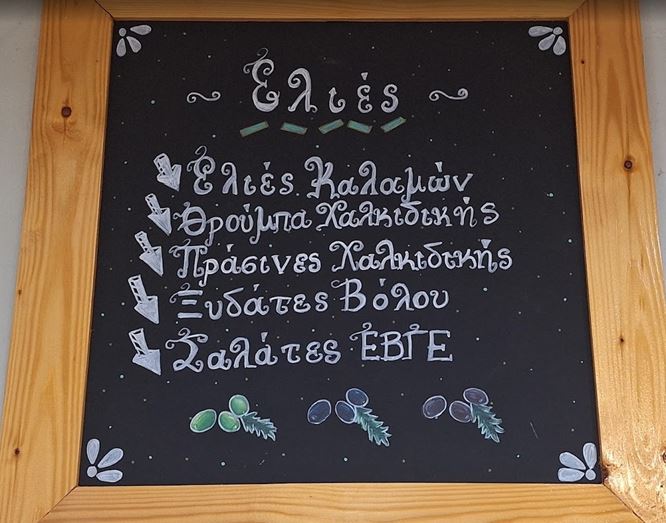 ~ Ελιές ~
Ελιές Καλαμών
Θρούμπα Χαλκιδικής
Πράσινες Χαλκιδικής
Ξυδάτες Βόλου
Σαλάτες ΕΒΓΕ